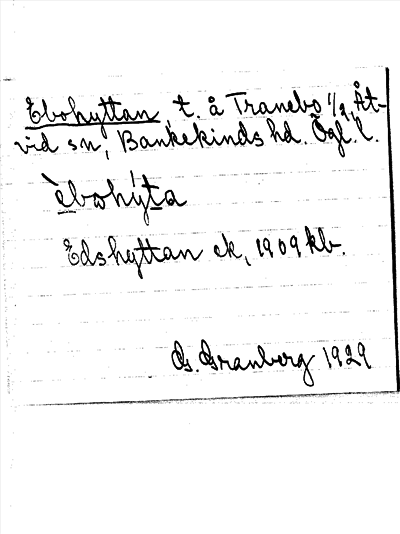 Ebohyttan, t. å Tranebo 1/2, Åt-
vid sn, Bankekinds hd. Ögl. l.
èbohýta
Edshyttan ek, 1909 kb.
G. Granberg 1929